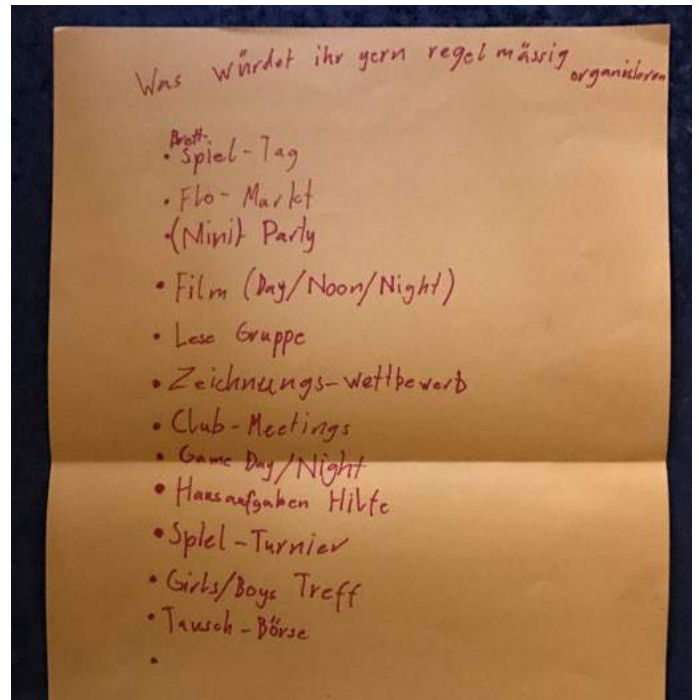 Was würdet ihr gern regelmässig organisieren
• Brett-Spiel-Tag
• Flo-Markt
• (Mini) Party
• Film (Day/Noon/Night)
• Lese Gruppe
• Zeichnungs-wettbewerb
• Club-Meetings
• Game Day/Night
• Hausaufgaben Hilfe
• Spiel-Turnier
• Girls/Boys Treff
• Tausch-Börse
•